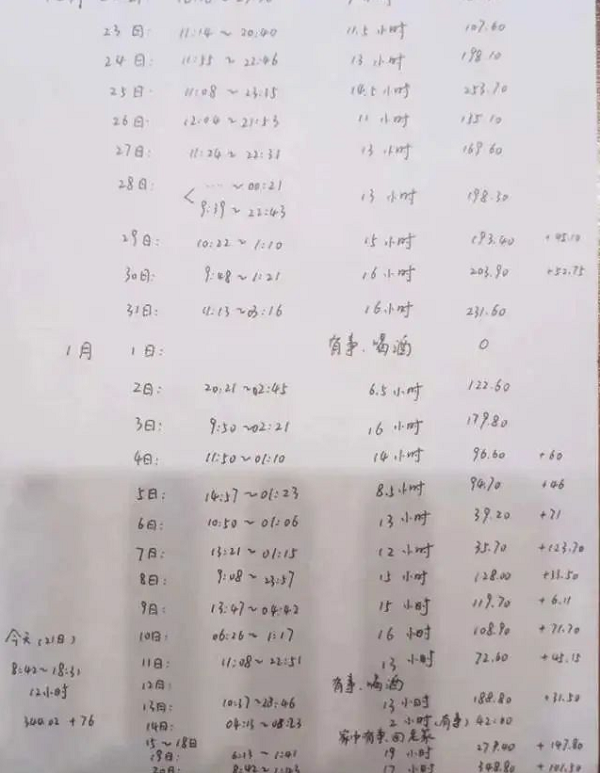 23日: 11:14~20:40 11.5小时 107.60
24日: 11:55~22:46 13小时 198.10
25日: 11:08~23:15 14.5小时 253.70
26日: 12:04~21:53 11小时 135.10
27日: 11:24~22:31 13小时 169.60
28日: < ~00:21 13小时 198.30
9:39~22:43
29日: 10:22~1:10 15小时 193.40 +45.10
30日: 9:48~1:21 16小时 203.90 +52.75
31日: 11:13~03:16 16小时 231.60
1月 1日: 有事、喝酒 0
2日: 20:21~02:45 6.5小时 122.60
3日: 9:50~02:21 16小时 179.80
4日: 11:50~01:10 14小时 96.60 +60
5日: 14:57~01:23 8.5小时 94.70 +46
6日: 10:50~01:06 13小时 39.20 +71
7日: 13:21~01:15 12小时 35.70 +123.70
8日: 9:08~23:57 15小时 128.00 +33.50
9日: 13:47~04:42 15小时 119.70 +6.11
今天(21日) 10日: 06:26~1:17 16小时 108.90 +71.70
8:42~18:31 11日: 11:08~22:51 13小时 72.60 +45.15
12小时 12日: 有事、喝酒
13日: 10:37~23:46 13小时 188.80 +31.50
344.02+76 14日: 04:13~08:23 2小时(有事) 42.00
15~18日 家中有事回老家
19日: 6:13~1:41 19小时 279.00 +147.80
20日: 8:42~1:43 17小时 348.80 +101.50